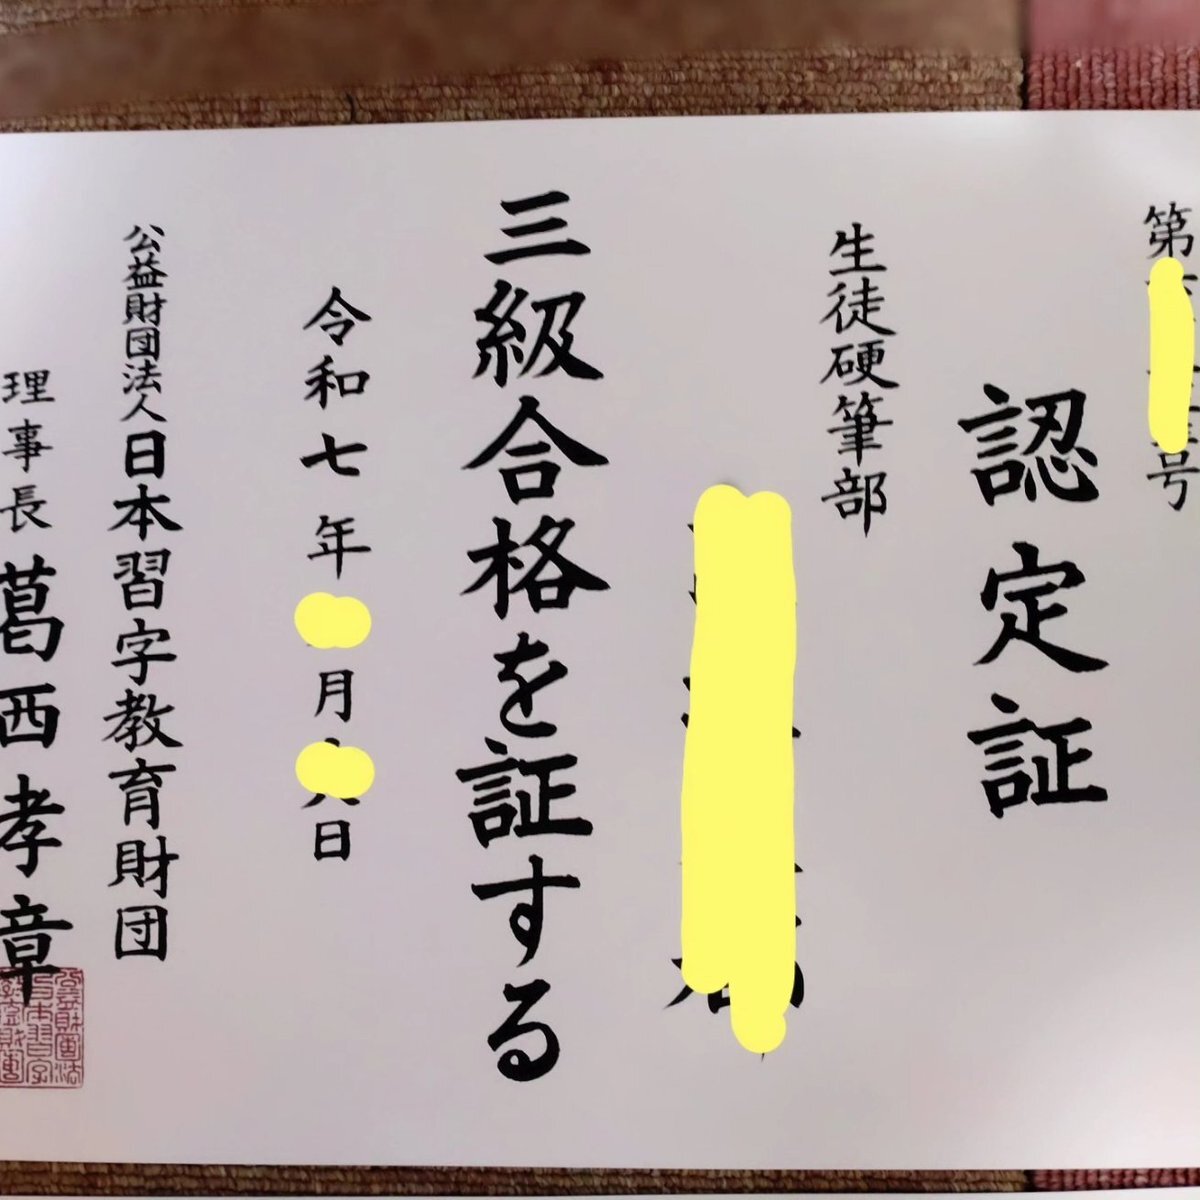 第 号
認定証
生徒硬筆部
三級合格を証する
令和七年 月 日
公益財団法人日本習字教育財団
理事長 葛西孝章